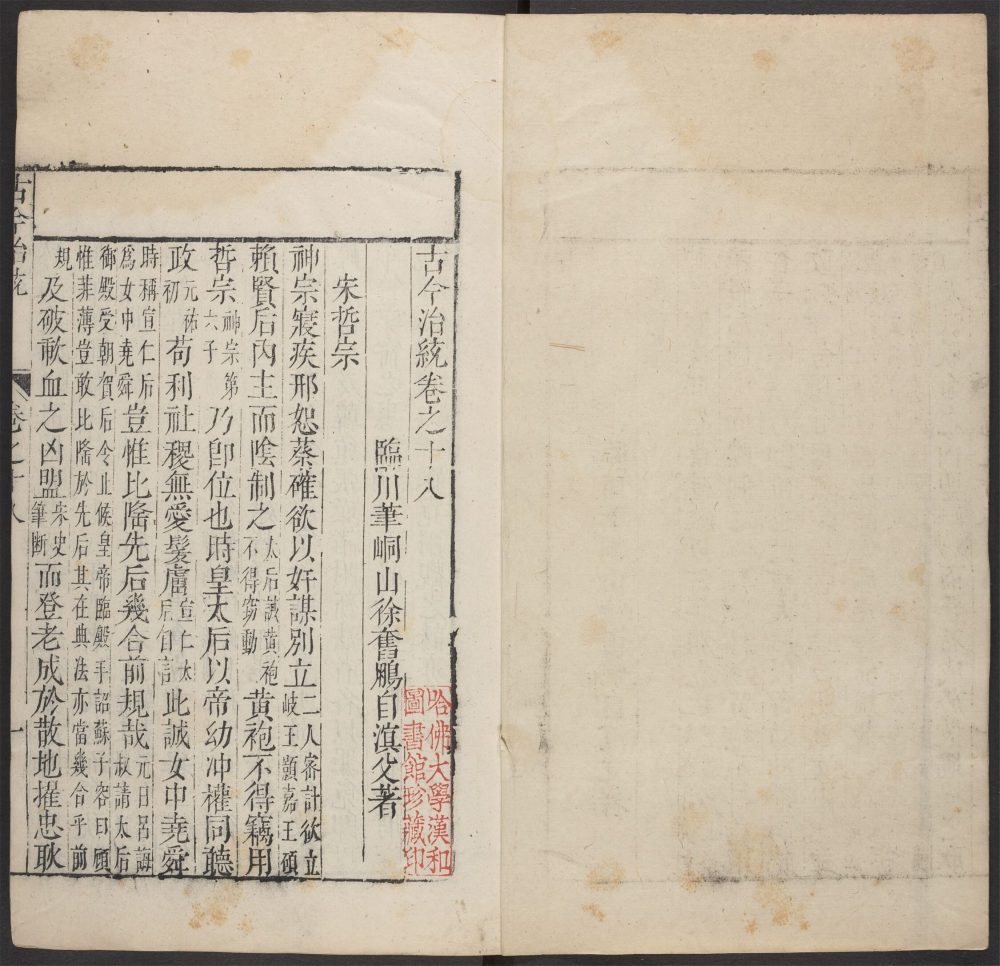 古今治統卷之十八
臨川筆峒山徐奮鵬自溟父著
宋哲宗
神宗寢疾邢恕蔡確欲以奸謀別立二人審計欲立岐王顥嘉王頵
賴賢后內主而陰制之太后謙黃袍不得窃動黃袍不得竊用
哲宗神宗第六子乃卽位也時皇太后以帝幼冲權同聽
政元祐初苟利社稷無愛髮膚宣仁太后自語此誠女中堯舜
時稱宣仁后爲女中堯舜豈惟比隆先后幾合前規哉元日呂誨叔請太后
御殿受朝賀后令止候皇帝臨殿手詔蘇子容曰顧惟菲薄豈敢比隆於先后其在典法亦當幾合乎前
規及破歃血之凶盟宋史筆斷而登老成於散地擢忠耿
古今治統
卷之十八
一
哈佛大學漢和
圖書館珍藏印